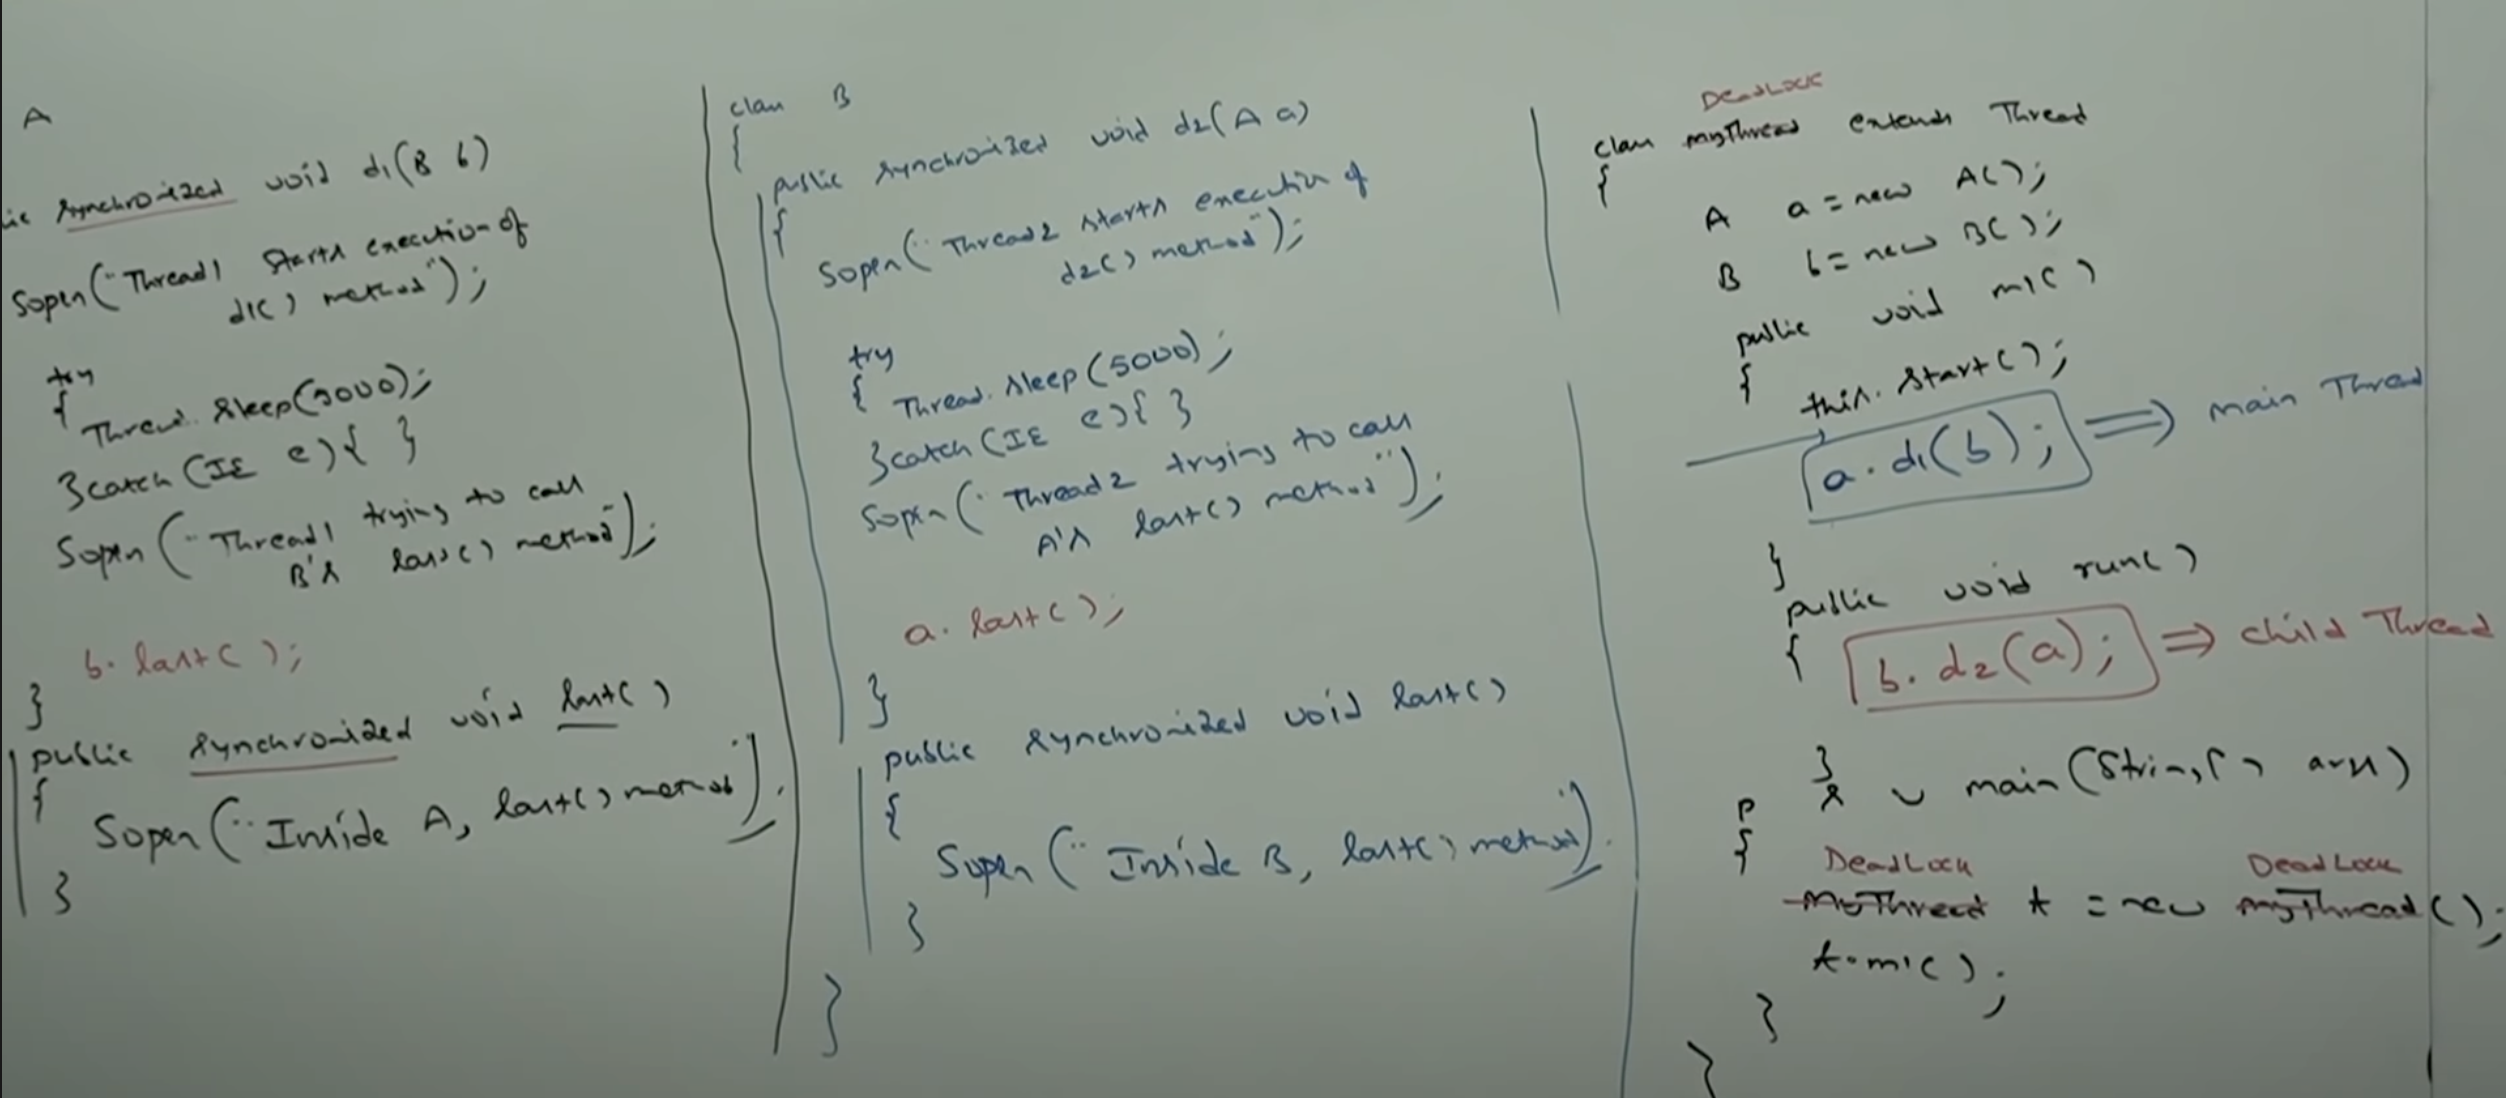 A
lic synchronized void d1(B b)
Sopln("Thread1 starts execution of
d1() method");
try
{
Thread.sleep(5000);
}catch(IE e){ }
Sopln("Thread1 trying to call
B's last() method");
b.last();
}
public synchronized void last()
{
Sopln("Inside A, last() method");
}
class B
{
public synchronized void d2(A a)
{
Sopln("Thread2 starts execution of
d2() method");
try
{ Thread.sleep(5000);
}catch(IE e){ }
Sopln("Thread2 trying to call
A's last() method");
a.last();
}
public synchronized void last()
{
Sopln("Inside B, last() method");
}
}
DeadLock
class myThread extends Thread
{
A a = new A();
B b = new B();
public void m1()
{
this.start();
a.d1(b); ⇒ main Thread
}
public void run()
{ b.d2(a); ⇒ child Thread
}
p s v main(String[] args)
{
DeadLock DeadLock
MyThread t = new myThread();
t.m1();
}
}